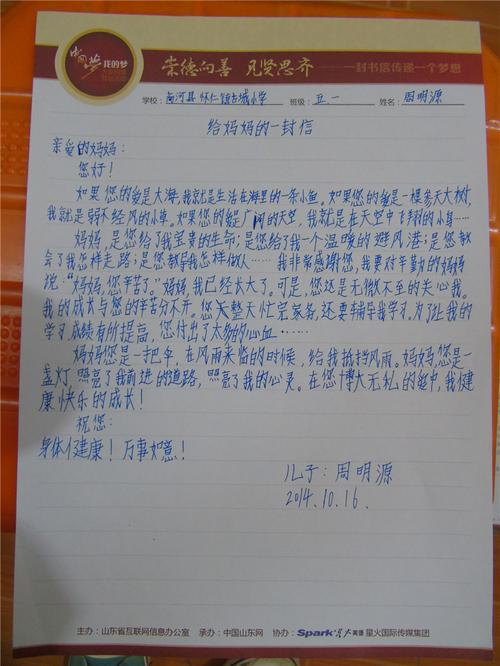 中国梦 我的梦
崇德向善 见贤思齐 一封书信传递一个梦想
学校:商河县怀仁镇古城小学 班级:五.一 姓名:周明源
给妈妈的一封信
亲爱的妈妈:
您好!
如果您的爱是大海,我就是生活在海里的一条小鱼。如果您的爱是一棵参天大树,
我就是弱不经风的小草。如果您的爱是广阔的天空,我就是在天空中飞翔的小鸟……
妈妈,是您给了我宝贵的生命;是您给了我一个温暖的避风港;是您教
会了我怎样走路;是您教导我怎样做人……我非常感谢您,我要对辛勤的妈妈
说:“妈妈,您辛苦了。”妈妈,我已经长大了。可是,您还是无微不至的关心我。
我的成长与您的辛苦分不开。您天整天忙完家务,还要辅导我学习。为了让我的
学习成绩有所提高,您付出了太多的心血……
妈妈您是一把伞,在风雨来临的时候,给我抵挡风雨。妈妈,您是一
盏灯,照亮了我前进的道路,照亮了我的心灵。在您博大无私的爱中,我健
康快乐的成长!
祝您:
身体健康!万事如意!
儿子:周明源
2014.10.16.
主办:山东省互联网信息办公室 承办:中国山东网 协办:Spark 星火英语 星火国际传媒集团